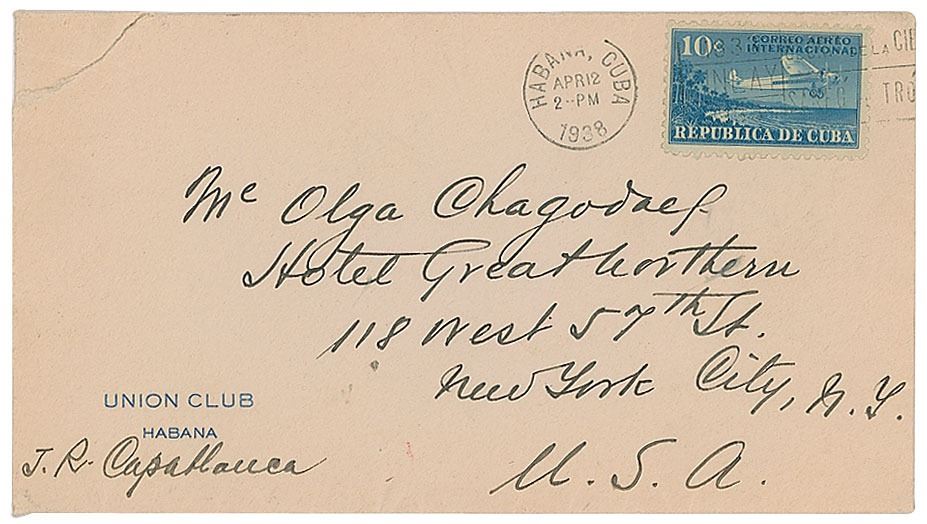 HABANA, CUBA
APR 12
2--PM
1938
10¢
CORREO AEREO
INTERNACIONAL
REPUBLICA DE CUBA
DE LA CIE
TRÓ
Mc Olga Chagodaef
Hotel Great Northern
118 West 57th St.
New York City, N.Y.
U.S.A.
UNION CLUB
HABANA
J. R. Capablanca